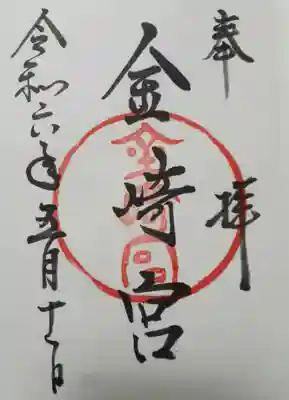 奉拝
金崎宮
令和六年五月十一日